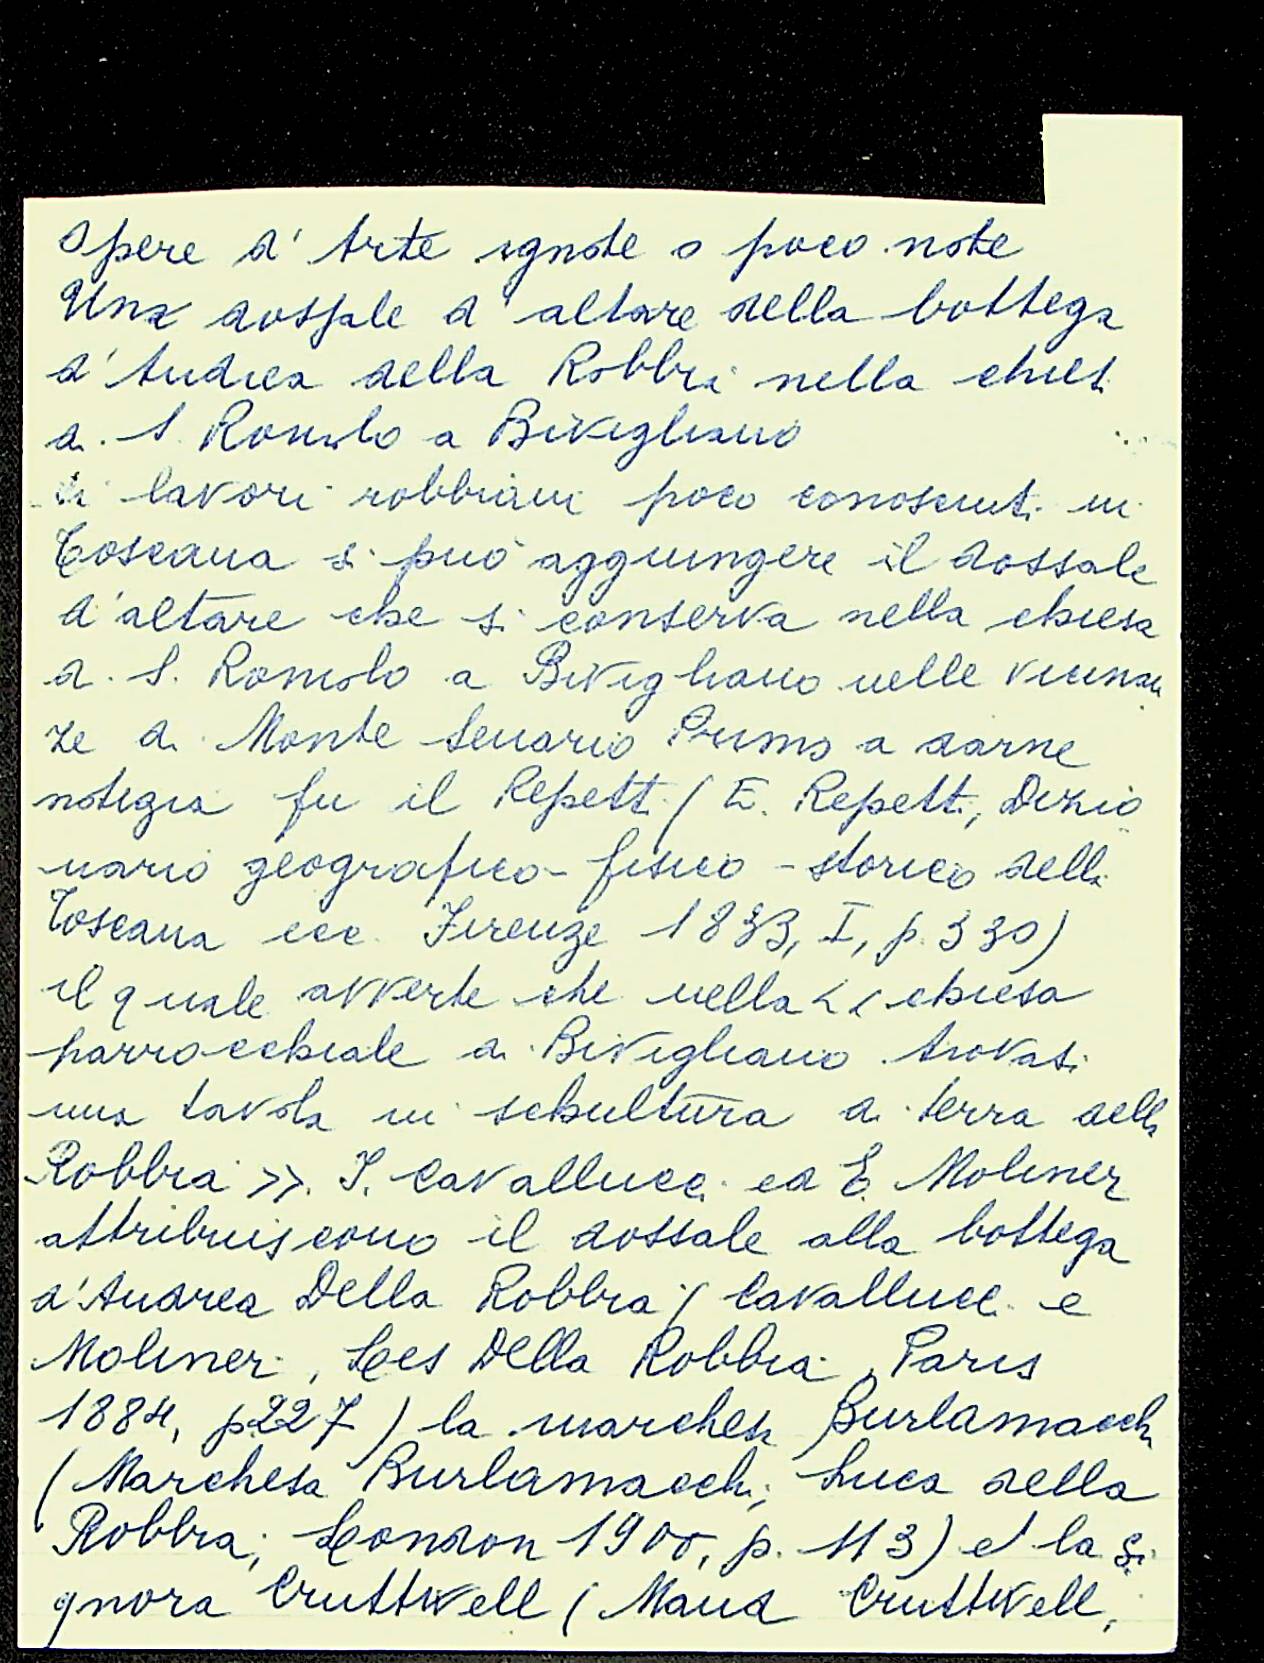 Opere d'Arte ignote o poco note
Una dossale d'altare della bottega
d'Andrea della Robbia nella chies
a. S. Romolo a Bivigliano
Ai lavori robbiani poco conosciuti in
Toscana si può aggiungere il dossale
d'altare che si conserva nella chiesa
di S. Romolo a Bivigliano nelle vicinan
ze di Monte Senario Primo a darne
notizia fu il Repetti (E. Repetti, Dizio
nario geografico-fisico-storico della
Toscana ecc. Firenze 1833, I, p. 330)
il quale avverte che nella << chiesa
parrocchiale di Bivigliano trovasi
una tavola in schultura di terra della
Robbia >>. J. Cavallucci ed E. Molinier
attribuiscono il dossale alla bottega
d'Andrea Della Robbia (Cavallucci e
Molinier, Les Della Robbia, Paris
1884, p. 227) la marchesa Burlamacchi
(Marchesa Burlamacchi; Luca della
Robbia; London 1900, p. 113) e la si
gnora Cruttwell (Maud Cruttwell,